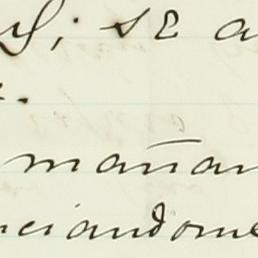 ; se a
mañan
nciandome